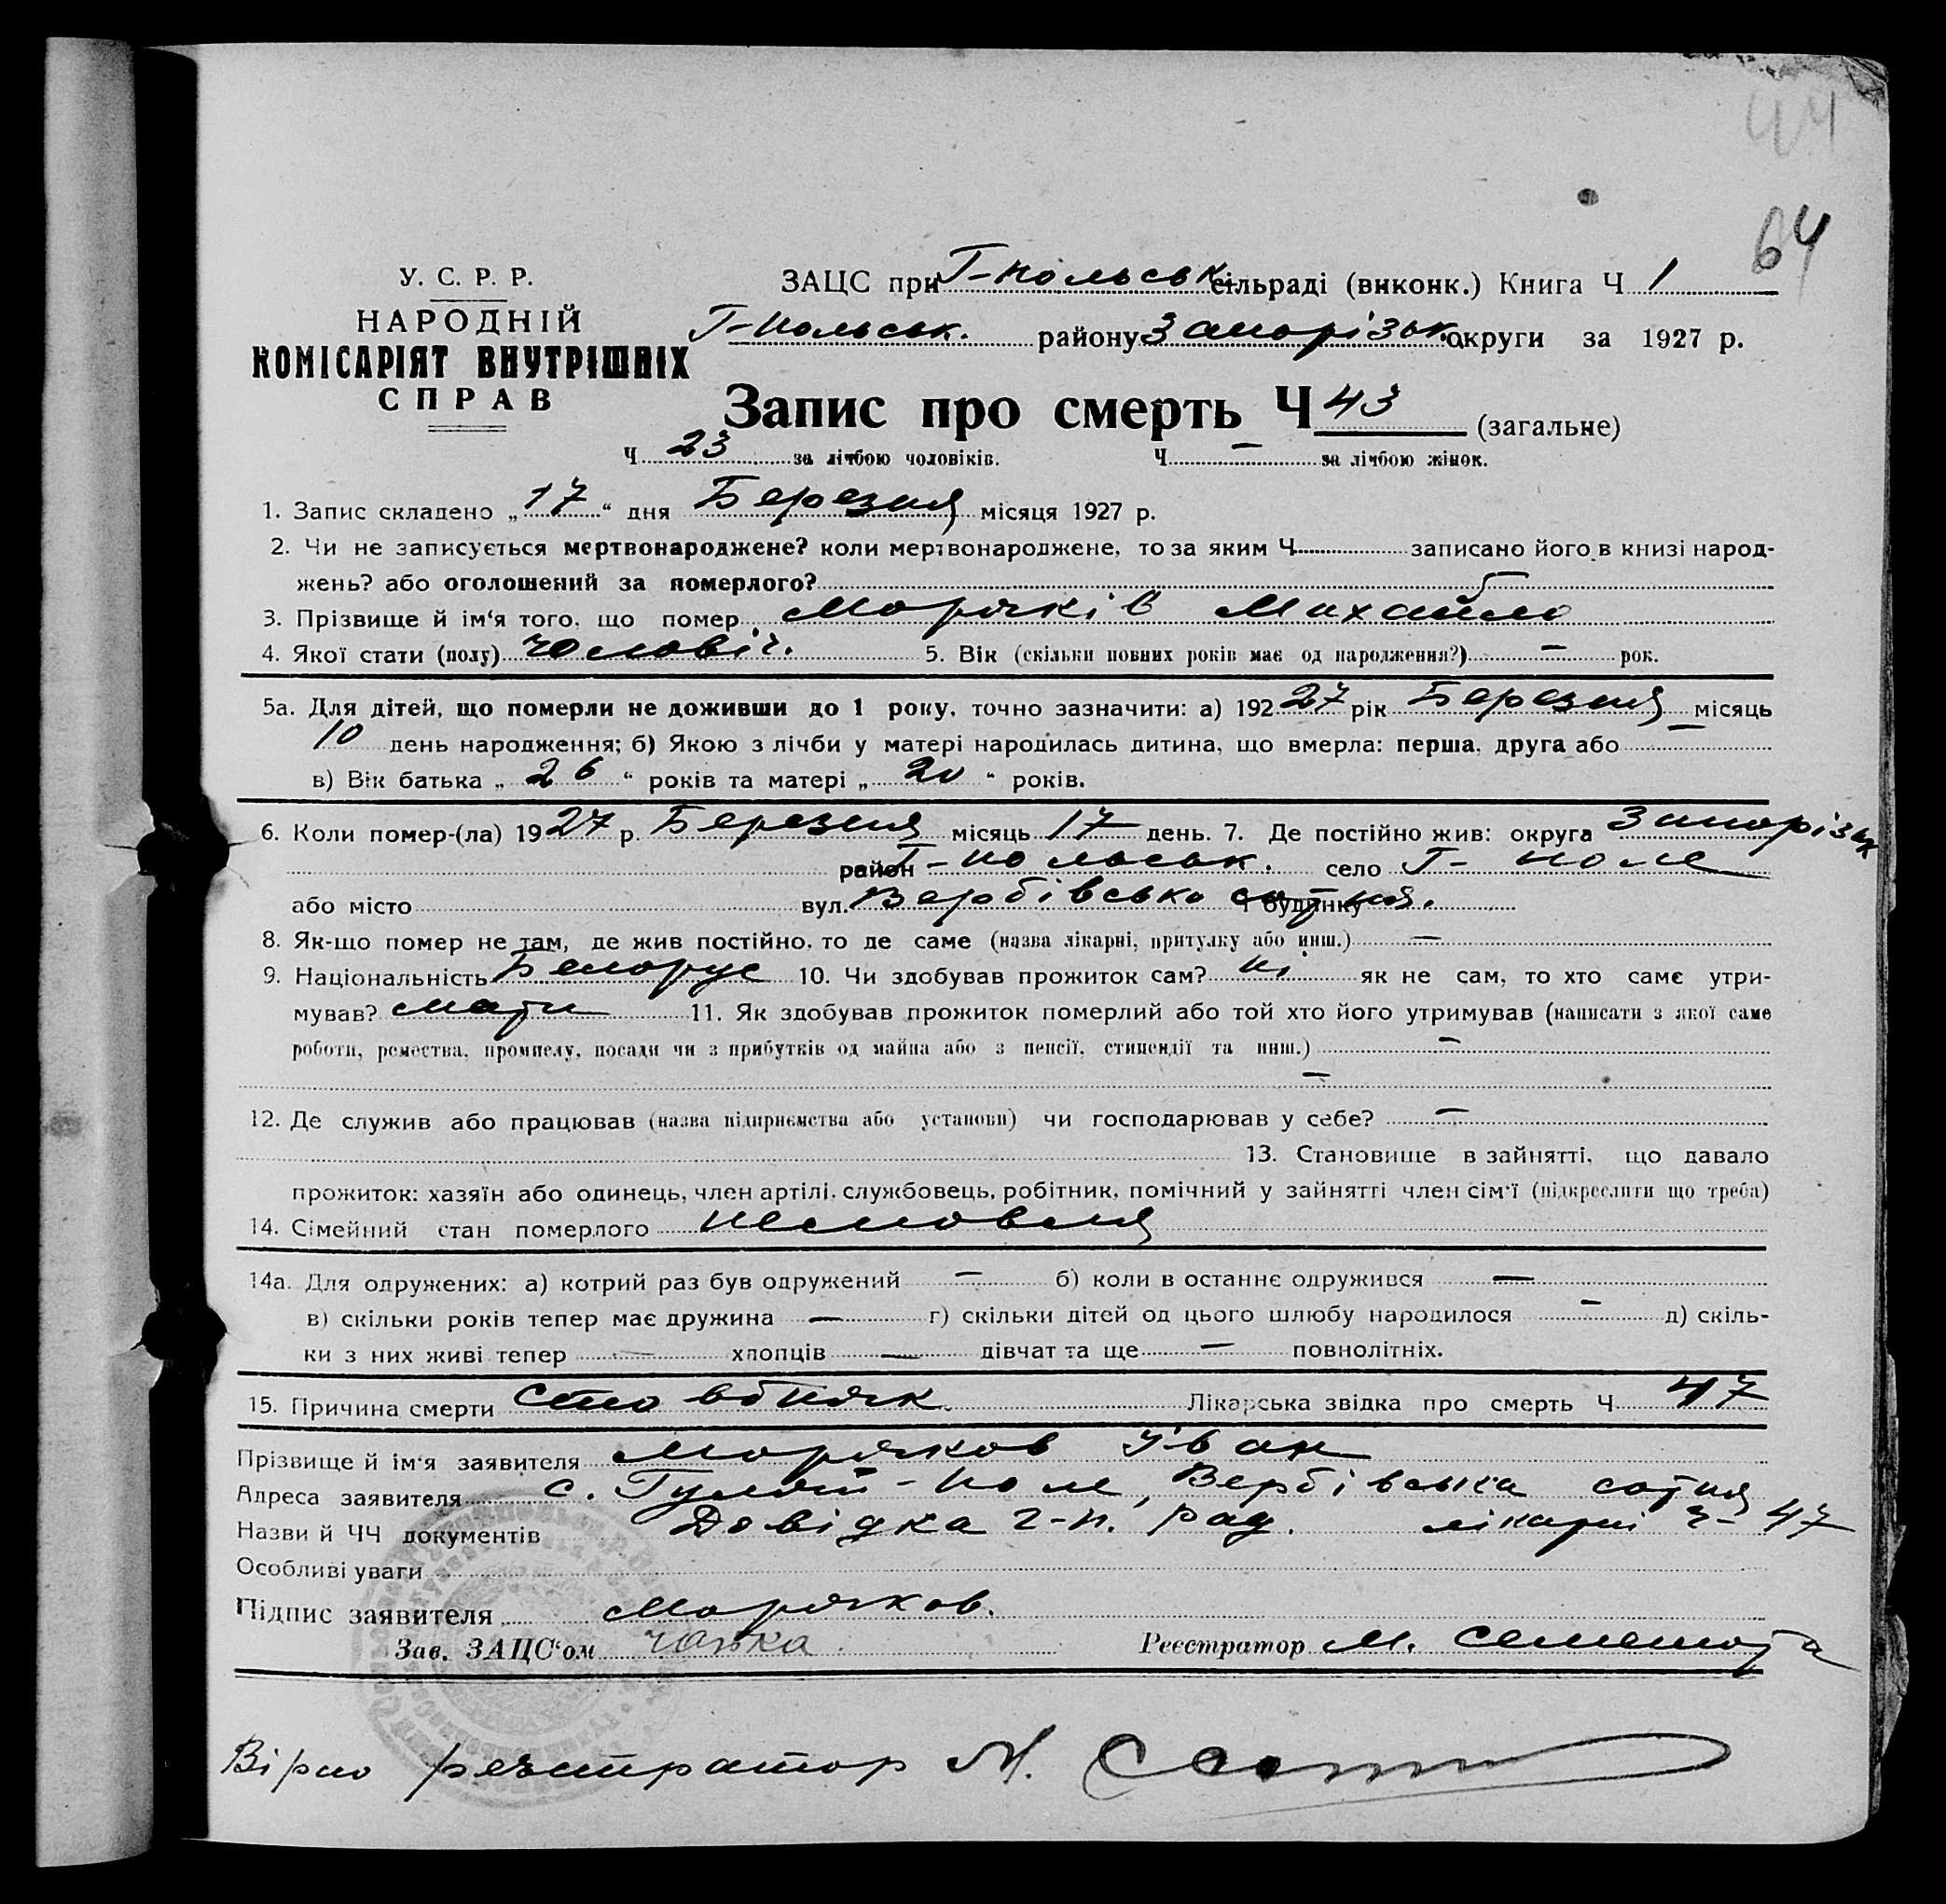 44
64
У. С. Р. Р.
НАРОДНІЙ
КОМІСАРІЯТ ВНУТРІШНІХ
СПРАВ
ЗАЦС при Г-Польськ. сільраді (виконк.) Книга Ч 1
Г-Польськ. району Запорізьк. округи за 1927 р.
Запис про смерть Ч 43 (загальне)
Ч 23 за лічбою чоловіків. Ч — за лічбою жінок.
1. Запис складено „17“ дня Березня місяця 1927 р.
2. Чи не записується мертвонароджене? коли мертвонароджене, то за яким Ч записано його в книзі народ-
жень? або оголошений за померлого?
3. Прізвище й ім‘я того, що помер Морячків Михайло
4. Якої стати (полу) чоловіч. 5. Вік (скільки повних років має од народження?) — рок.
5а. Для дітей, що померли не доживши до 1 року, точно зазначити: а) 192 27 рік Березня місяць
10 день народження; б) Якою з лічби у матері народилась дитина, що вмерла: перша, друга або —
в) Вік батька „26“ років та матері „20“ років.
6. Коли помер-(ла) 1927 р. Березня місяць 17 день. 7. Де постійно жив: округа Запорізьк
район Г-Польськ. село Г-Поле
або місто вул. Вербівська сотня. і будинку
8. Як-що помер не там, де жив постійно, то де саме (назва лікарні, притулку або инш.) —
9. Національність Белорус 10. Чи здобував прожиток сам? ні як не сам, то хто саме утри-
мував? мати 11. Як здобував прожиток померлий або той хто його утримував (написати з якої саме
роботи, ремества, промислу, посади чи з прибутків од майна або з пенсії, стипендії та инш.) —
—
12. Де служив або працював (назва підприємства або установи) чи господарював у себе? —
13. Становище в зайнятті, що давало
прожиток: хазяїн або одинець, член артілі, службовець, робітник, помічний у зайнятті член сім‘ї (підкреслити що треба)
14. Сімейний стан померлого немовля
14а. Для одружених: а) котрий раз був одружений — б) коли в останнє одружився —
в) скільки років тепер має дружина — г) скільки дітей од цього шлюбу народилося — д) скіль-
ки з них живі тепер — хлопців — дівчат та ще — повнолітніх.
15. Причина смерти стовбняк Лікарська звідка про смерть Ч 47
Прізвище й ім‘я заявителя Морячков Іван
Адреса заявителя с. Гуляй-Поле, Вербівська сотня
Назви й ЧЧ документів Довідка Г-П. рад. лікарні Ч- 47
Особливі уваги
Підпис заявителя Морячков.
Зав. ЗАЦС‘ом Реєстратор М. Семенота
Вірно реєстратор М.